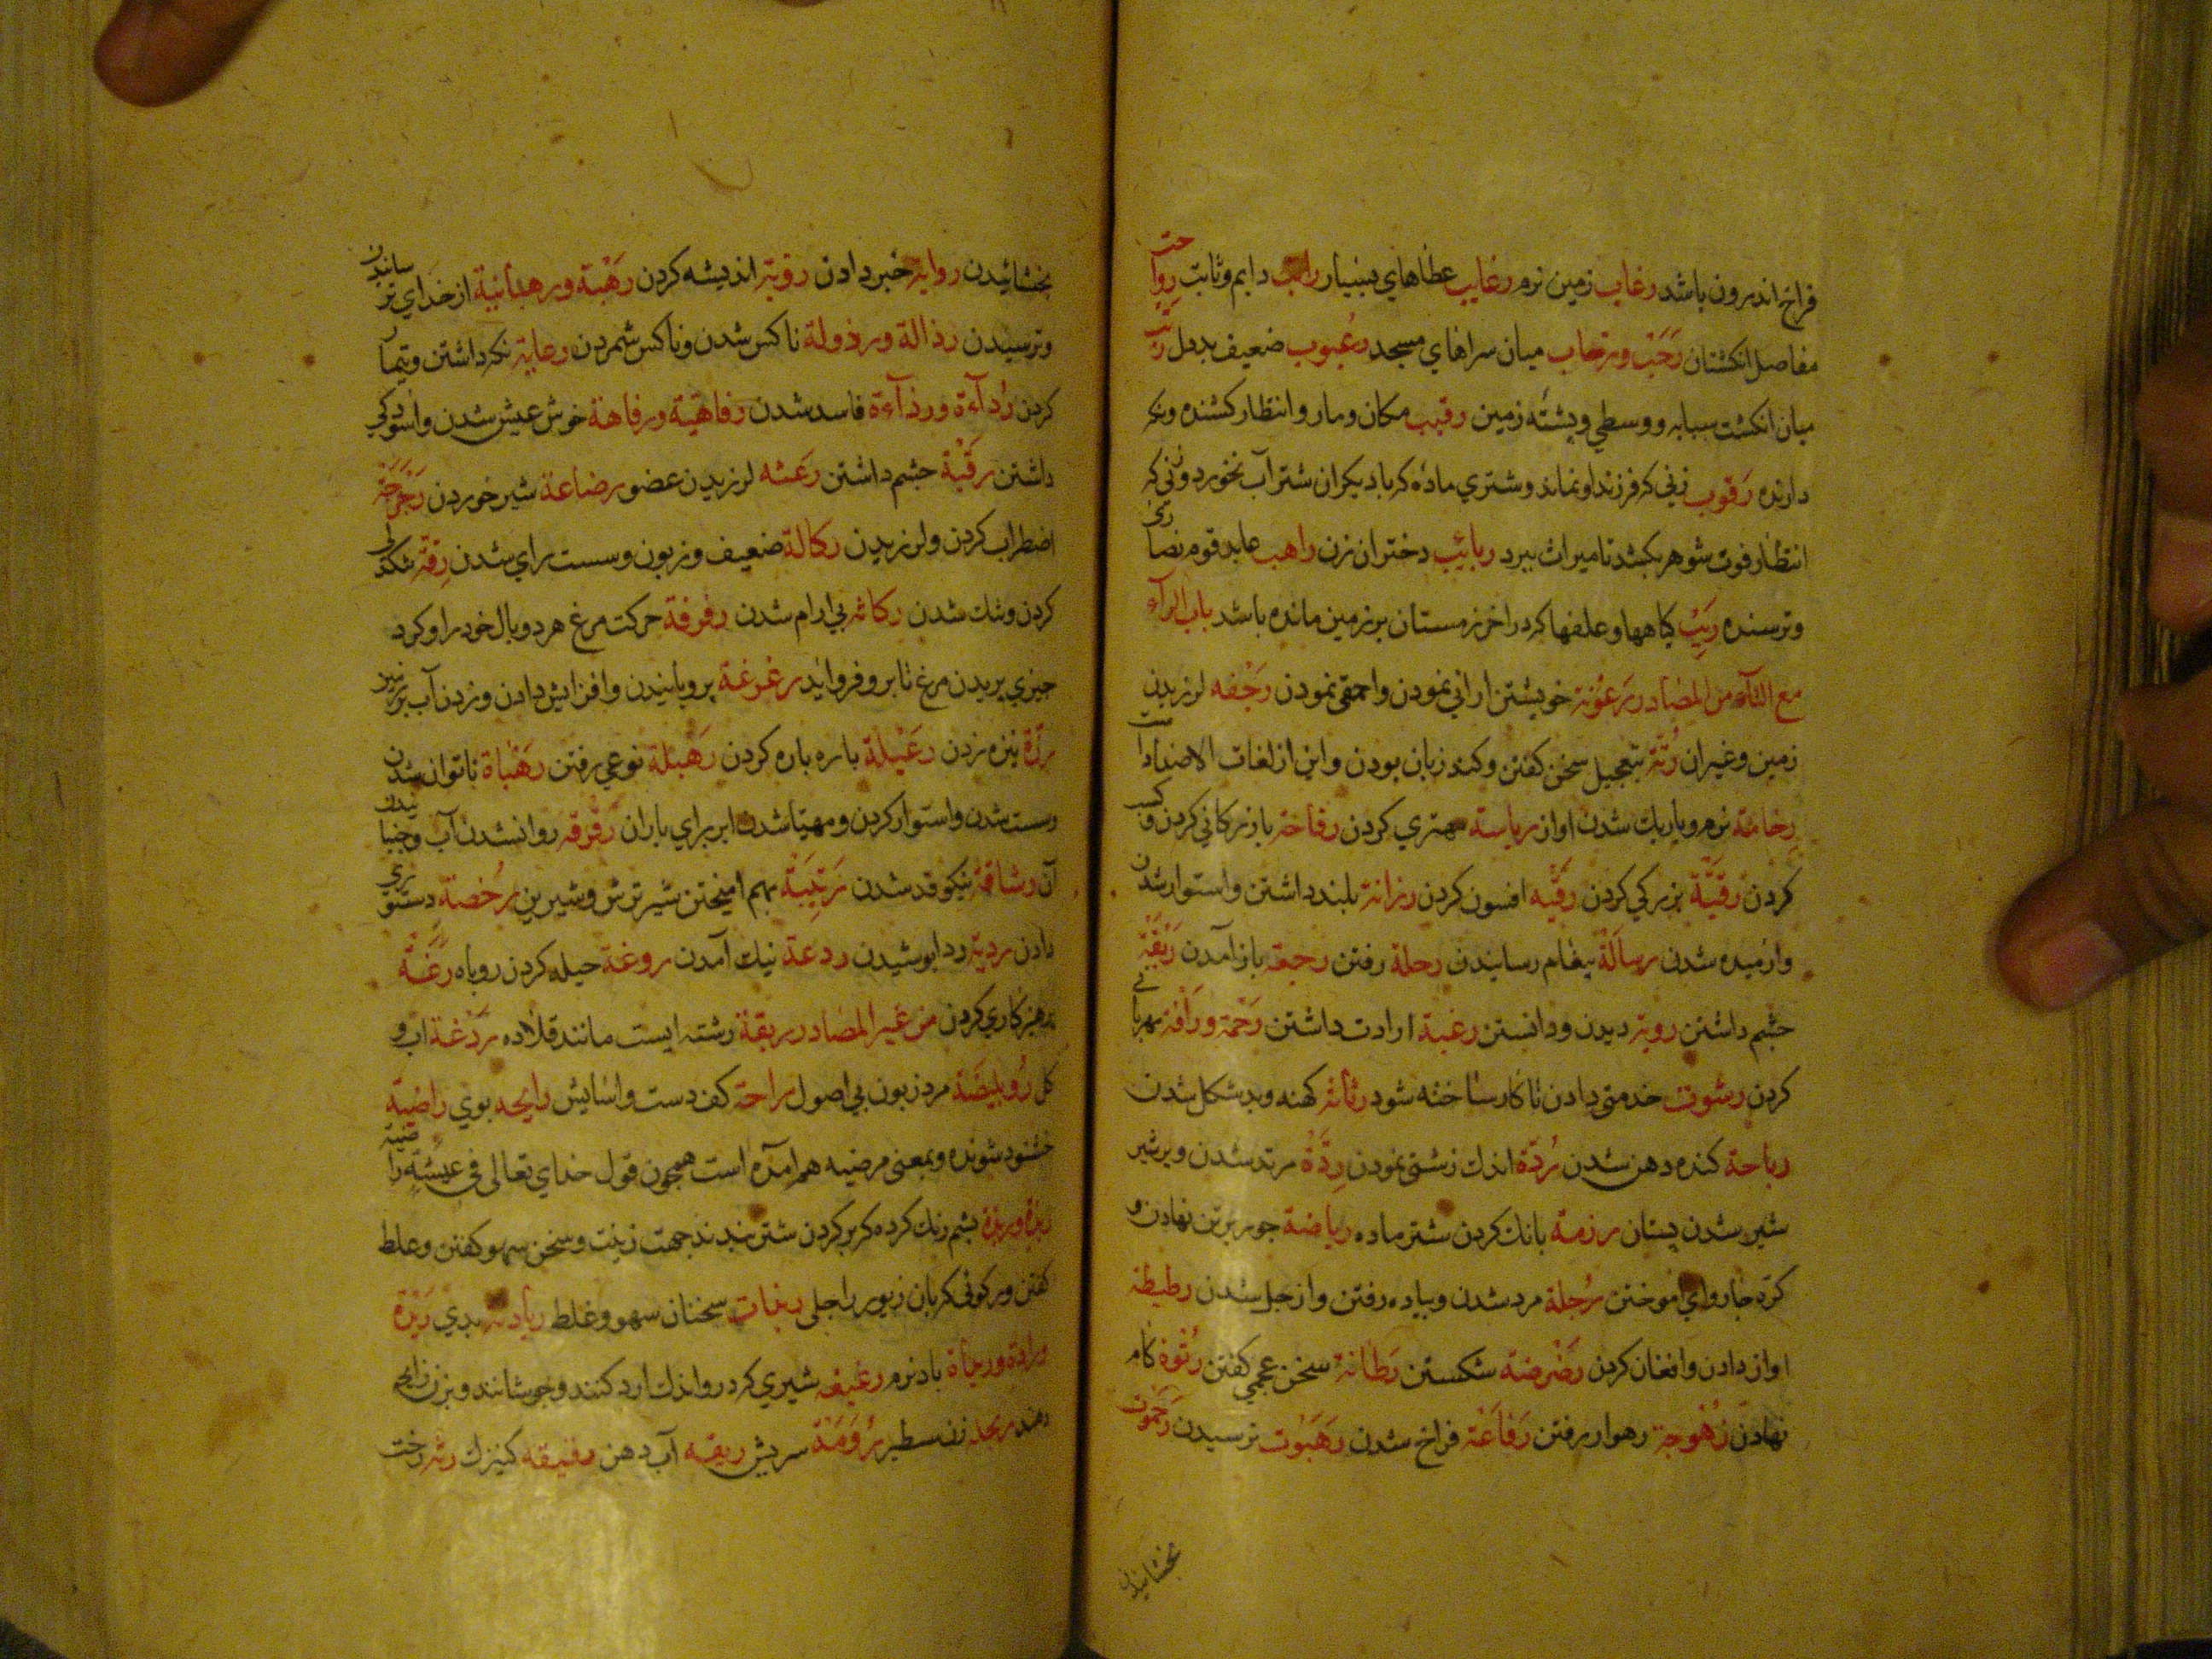 فراخ اندرون باشد رغاب زمین نرم رغایب عطاهای بسیار راتب دایم و ثابت رواجب
مفاصل انکشتان رحبة و رحاب میان سراهای مسجد رعبوب ضعیف بددل رتب
میان انکشت سبابه و وسطی و پشته زمین رقیب مکان و مار و انتظار کشنده و نکه
دارنده رقوب زنی که فرزند او نماند و شتری ماده که با دیکران شتر آب نخورد و زنی که
انتظار فوت شوهر بکشد تا میراث ببرد ربائب دختران زن راهب عابد قوم نصاری
و ترسنده ربب کیاهها و علفها که در اخر زمستان بر زمین مانده باشد باب الرآء
مع التآء من المصادر رعونة خویشتن ارائی نمودن و احمقی نمودن رجفه لرزیدن
زمین و غیر ان رتة بتعجیل سخن کفتن و کند زبان بودن و این از لغات الاضداد است
رخامة نرم و باریك شدن اواز ریاسة مهتری کردن رقاحة بازرکانی کردن و کسب
کردن رقیة بزرکی کردن رقیه افسون کردن رزانة بلند داشتن و استوار شدن
و ارمیده شدن رسالة پیغام رسانیدن رحلة رفتن رجعة باز آمدن ربقة
چشم داشتن رویة دیدن و دانستن رغبة ارادت داشتن رحمة و رافة مهربانی
کردن رشوت خدمتی دادن تا کار ساخته شود رثاثة کهنه و بد شکل شدن
رباحة کنده دهن شدن ردة اندك زشتی نمودن ردة مرتد شدن و پر شیر
شیر شدن پستان رزمة بانك کردن شتر ماده ریاضة جور بر تن نهادن و
کره چاروای اموختن رجلة مرد شدن و پیاده رفتن و از جل شدن رطیطة
اواز دادن و افغان کردن رضرضة شکستن رطانة سخن عجمی کفتن رتوة کام
نهادن رهوجة رهوار رفتن رفاغة فراخ شدن رهبوت ترسیدن رحموت
بخشائیدن
بخشائیدن روایة خبر دادن رویة اندیشه کردن رهبة و رهبانیة از خدای ترسانیدن
و ترسیدن رذالة و رذولة ناکس شدن و ناکس شمردن رعایة نکه داشتن و تیمار
کردن ردآءة و رذآءة فاسد شدن رفاهیة و رفاهة خوش عیش شدن و اسودکی
داشتن رقبة چشم داشتن رعشه لرزیدن عضو رضاعة شیر خوردن رجرجة
اضطراب کردن و لرزیدن رکاکة ضعیف و زبون و سست رای شدن رقة تنکدلی
کردن و تنك شدن رکاثة بی ارام شدن رفرفة حرکت مرغ هر دو بال خود را و کرد
چیزی پریدن مرغ تا بر او فرو اید رغرغة پرویانیدن و افزایش دادن و زدن آب بر شیر
رزة نیزه زدن رعبلة پاره پاره کردن رهبلة نوعی رفتن رهیاة ناتوان شدن
و سست شدن و استوار کردن و مهیا شدن ابر برای باران رقرقة روانشدن آب و جنبانیدن
آن رشاقة نیکو قد شدن رتیبة بهم امیختن شیر ترش و شیرین رخصة دستوری
دادن ردیة ردا پوشیدن ردعة نیك آمدن روغة حیله کردن روباه رغة
پرهیزکاری کردن من غیر المصادر ربقة رشته ایست مانند قلاده ردغة اب و
کل رویبضة مرد زبون بی اصول راحة کف دست و اسایش رایحه بوی راضیة
خشنود شونده و بمعنی مرضیه هم امده است همچون قول خدای تعالی فی عیشة راضیة
ربذة و ربذة پشم رنك کرده کر بر کردن شتر بندند جهت زینت و سخن سهو کفتن و غلط
کفتن و رکوئی کر بان زیور را جلی ربذات سخنان سهو و غلط ریادة بدی ریدة
و رادة و رجاة باد نرم رغیفه شیری که در و اندك ارد کنند و جوشانند و بزن زایچه
دهند ربحلة زن سطبر رومة سریش ریقه آب دهن رقیقه کنیزك رثة رخت